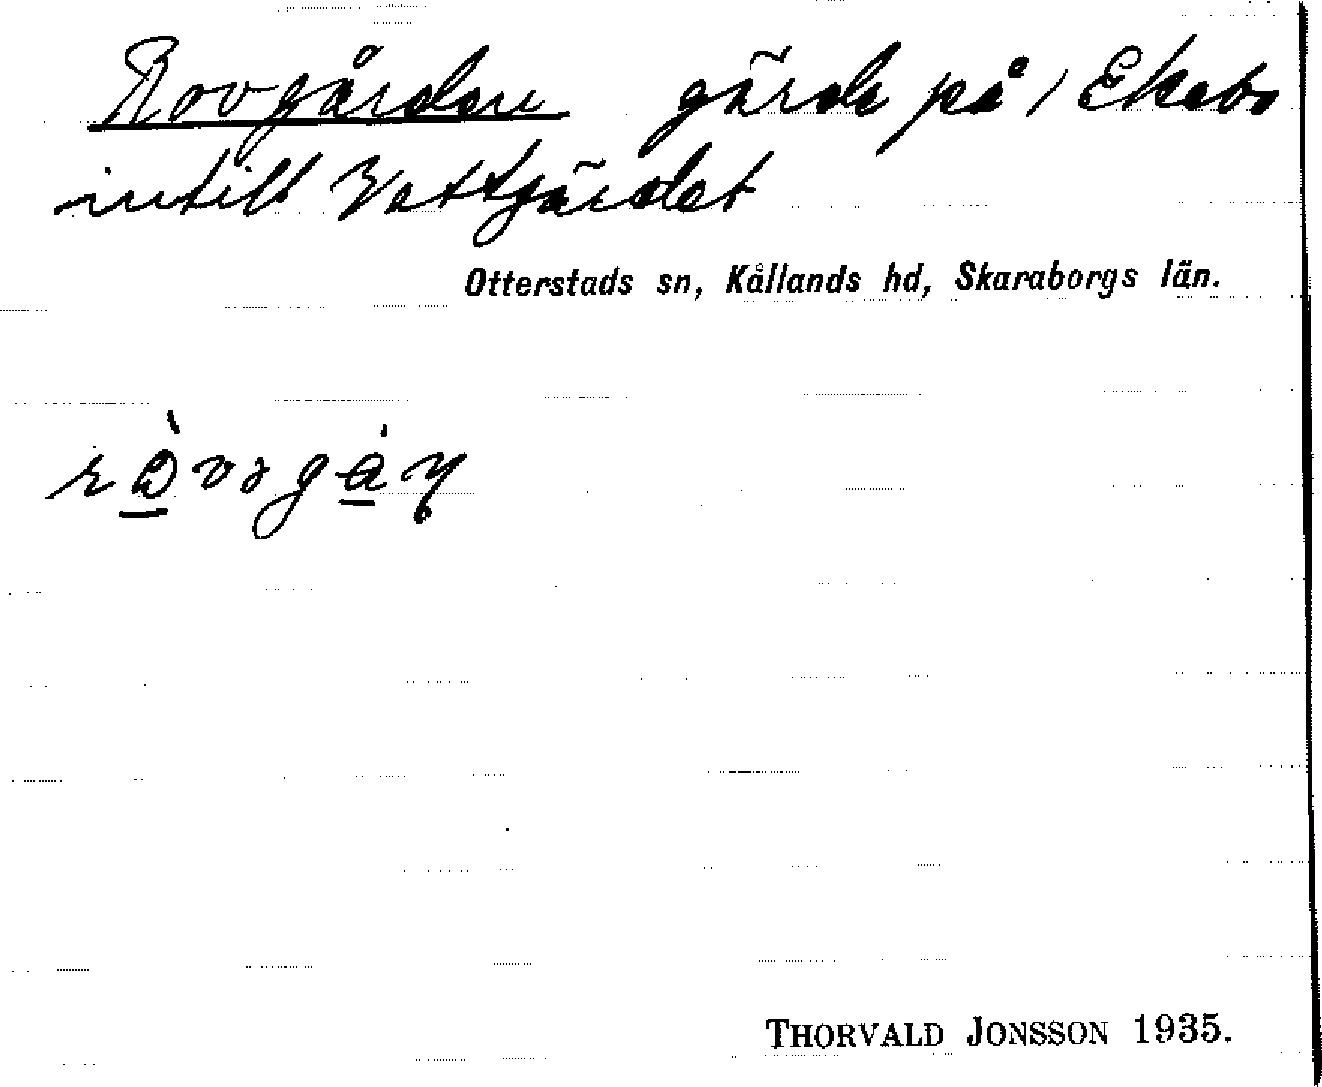 Rovgården gärde på 1 Ekebo
intill Vattgärdet
Otterstads sn, Kållands hd, Skaraborgs län.
THORVALD JONSSON 1935.